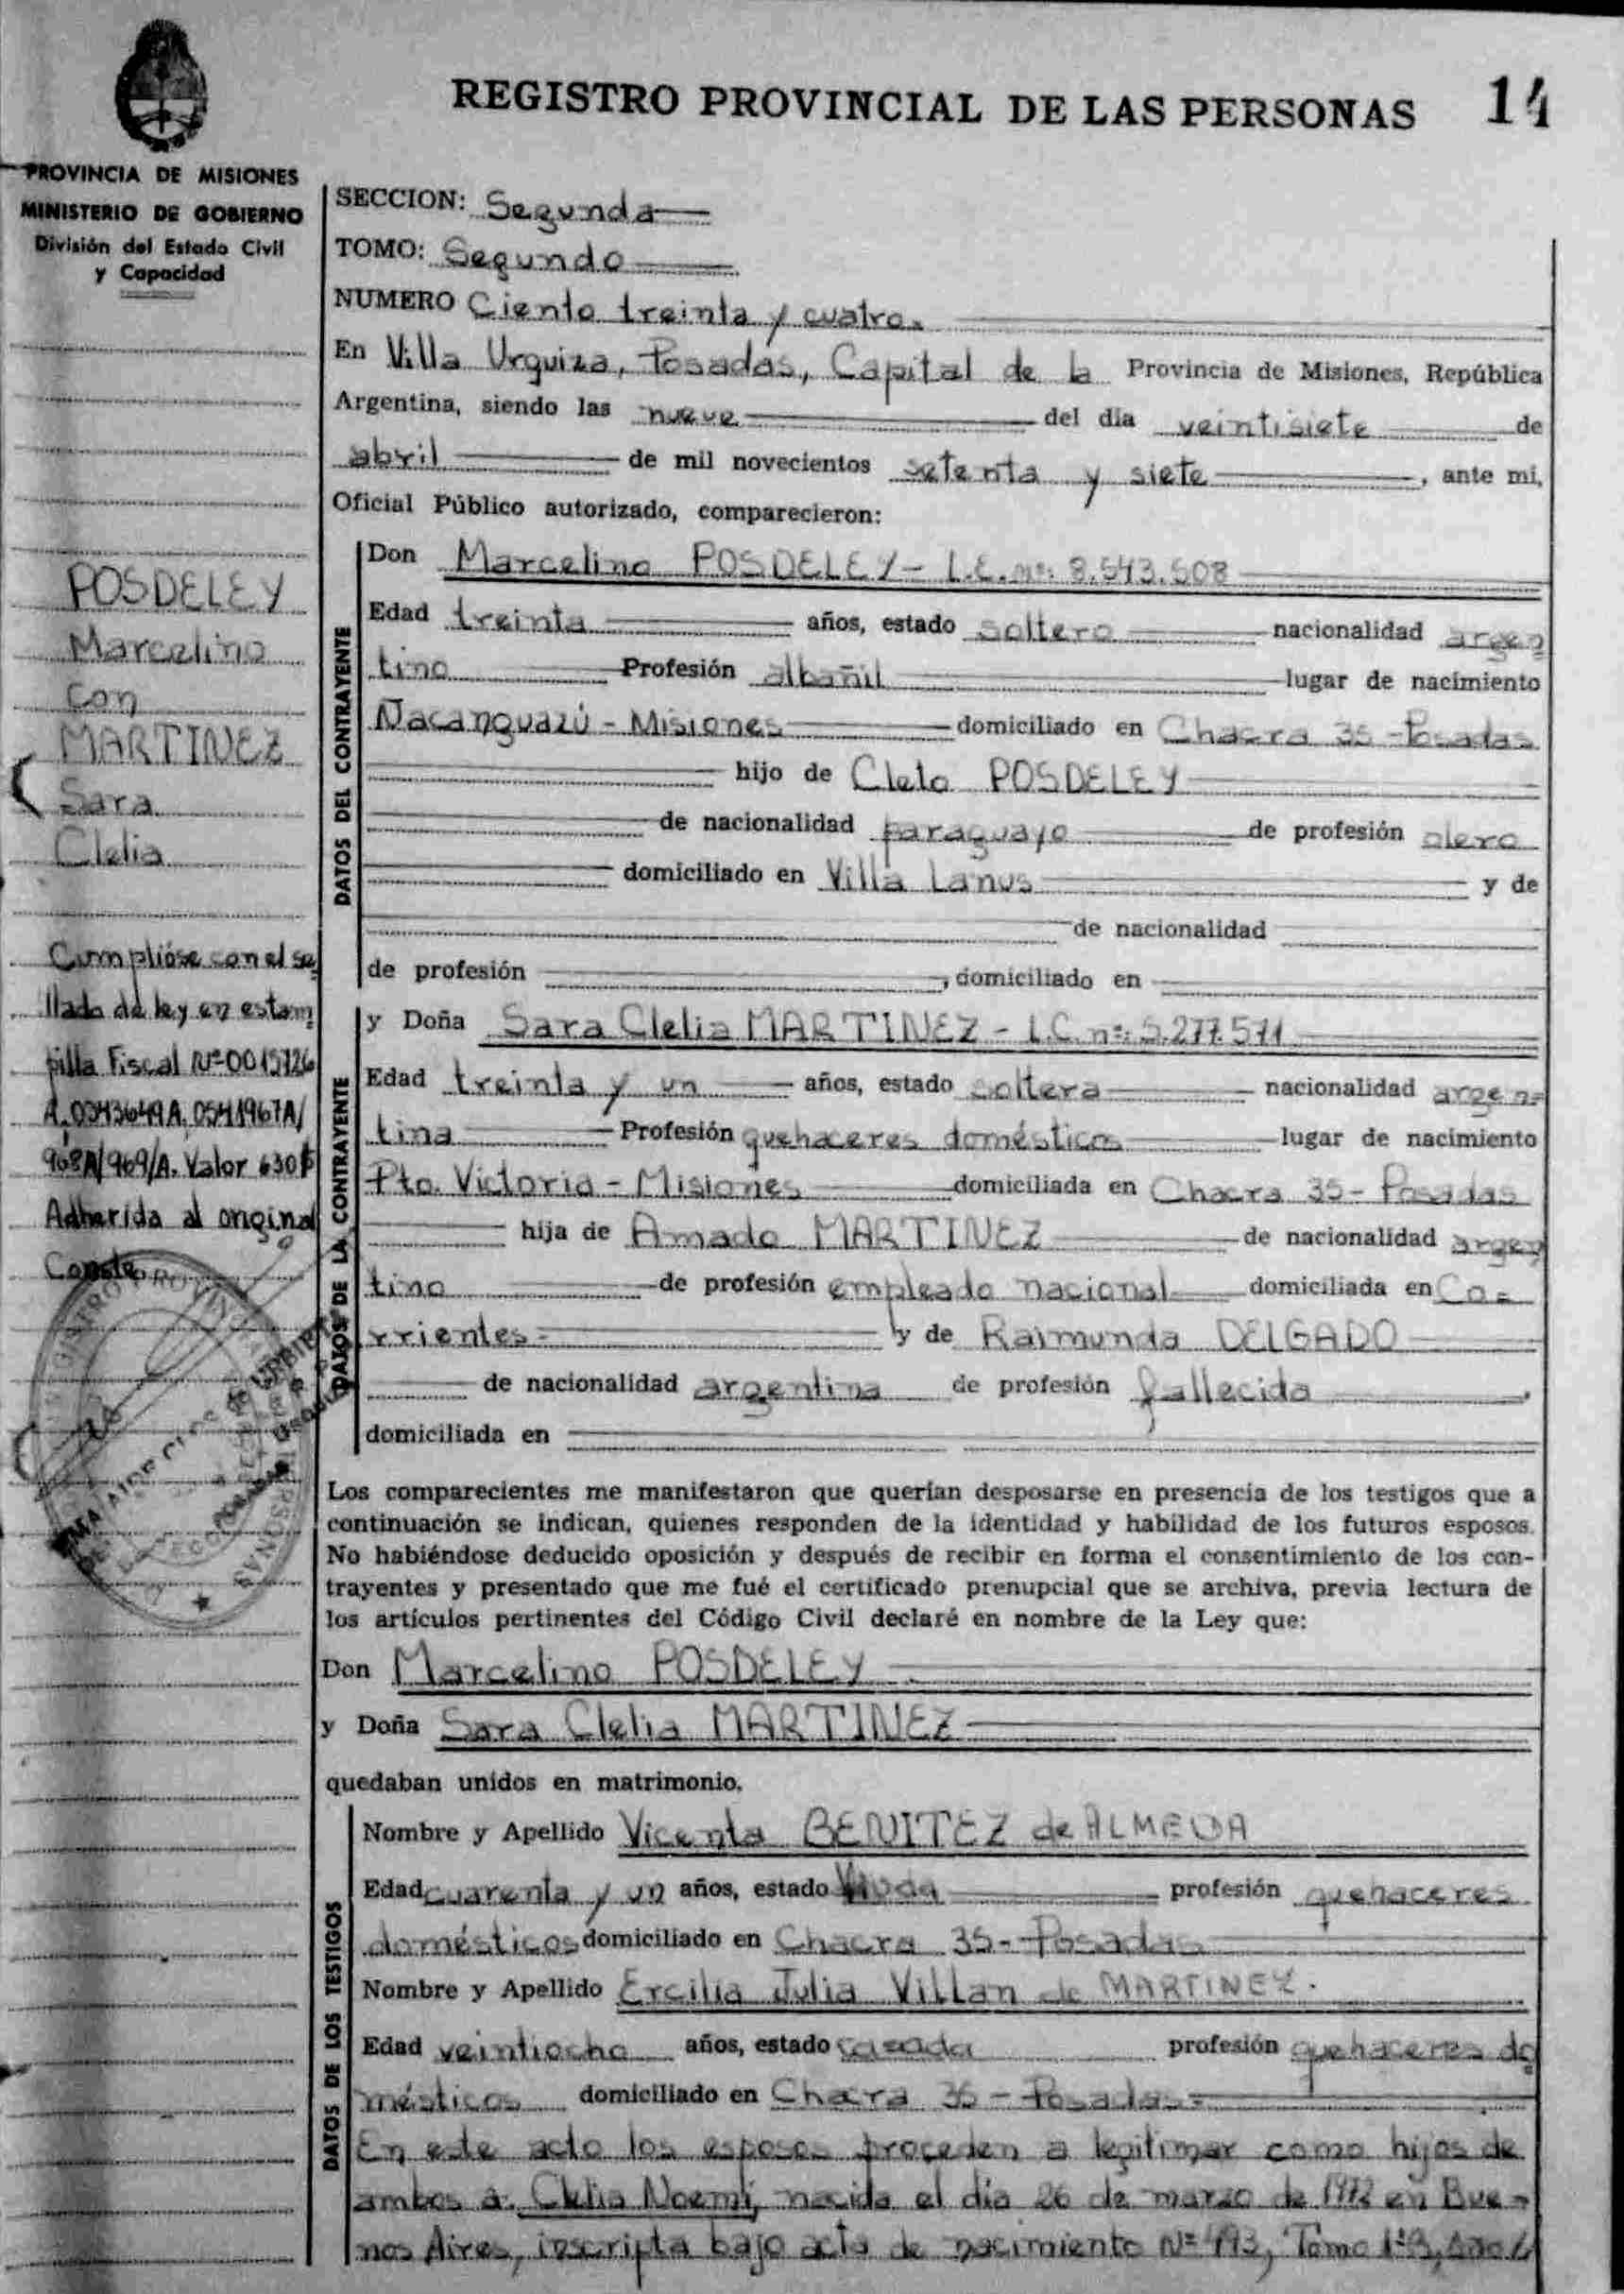 REGISTRO PROVINCIAL DE LAS PERSONAS 14
PROVINCIA DE MISIONES
MINISTERIO DE GOBIERNO
División del Estado Civil
y Capacidad
POSDELEY
Marcelino
con
MARTINEZ
Sara
Clelia
Cumplióse con el se
llado de ley en estam
pilla Fiscal Nº 0015726
A. 0343649A. 0541967A/
968A/969/A. Valor 630$
Adherida al original
Conste
SECCION: Segunda
TOMO: Segundo
NUMERO Ciento treinta y cuatro.
En Villa Urquiza, Posadas, Capital de la Provincia de Misiones, República
Argentina, siendo las nueve del día veintisiete de
abril de mil novecientos setenta y siete, ante mi,
Oficial Público autorizado, comparecieron:
DATOS DEL CONTRAYENTE
Don Marcelino POSDELEY - L.E. nº: 8.543.508
Edad treinta años, estado soltero nacionalidad argen
tino Profesión albañil lugar de nacimiento
Ñacanguazú - Misiones domiciliado en Chacra 35 - Posadas
hijo de Cleto POSDELEY
de nacionalidad paraguayo de profesión olero
domiciliado en Villa Lanus y de
de nacionalidad
de profesión , domiciliado en
DATOS DE LA CONTRAYENTE
y Doña Sara Clelia MARTINEZ - L.C. nº: 5.277.571
Edad treinta y un años, estado soltera nacionalidad argen=
tina Profesión quehaceres domésticos lugar de nacimiento
Pto. Victoria - Misiones domiciliada en Chacra 35 - Posadas
hija de Amado MARTINEZ de nacionalidad argen
tino de profesión empleado nacional domiciliada en Co=
rrientes y de Raimunda DELGADO
de nacionalidad argentina de profesión fallecida,
domiciliada en
Los comparecientes me manifestaron que querían desposarse en presencia de los testigos que a
continuación se indican, quienes responden de la identidad y habilidad de los futuros esposos.
No habiéndose deducido oposición y después de recibir en forma el consentimiento de los con-
trayentes y presentado que me fué el certificado prenupcial que se archiva, previa lectura de
los artículos pertinentes del Código Civil declaré en nombre de la Ley que:
Don Marcelino POSDELEY
y Doña Sara Clelia MARTINEZ
quedaban unidos en matrimonio.
DATOS DE LOS TESTIGOS
Nombre y Apellido Vicenta BENITEZ de ALMEIDA
Edad cuarenta y un años, estado viuda profesión quehaceres
domésticos domiciliado en Chacra 35 - Posadas
Nombre y Apellido Ercilia Julia Villan de MARTINEZ.
Edad veintiocho años, estado casada profesión quehaceres do
mésticos domiciliado en Chacra 35 - Posadas
En este acto los esposos proceden a legitimar como hijos de
ambos a: Clelia Noemí, nacida el día 26 de marzo de 1972 en Bue=
nos Aires, inscripta bajo acta de nacimiento Nº 493, Tomo